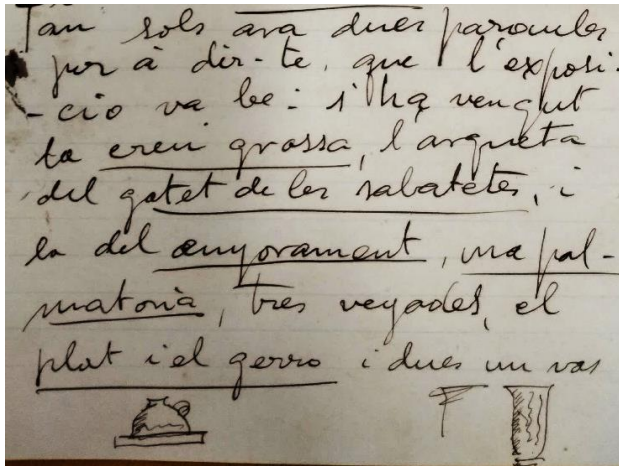 Tan sols ara dues paraules
per à dir-te, que l'exposi-
-cio va be: s'ha vengut
la creu grossa, l'arqueta
del gatet de les sabatetes, i
la del anyorament, una pal-
matoria, tres vegades, el
plat i el gerro i dues un vas